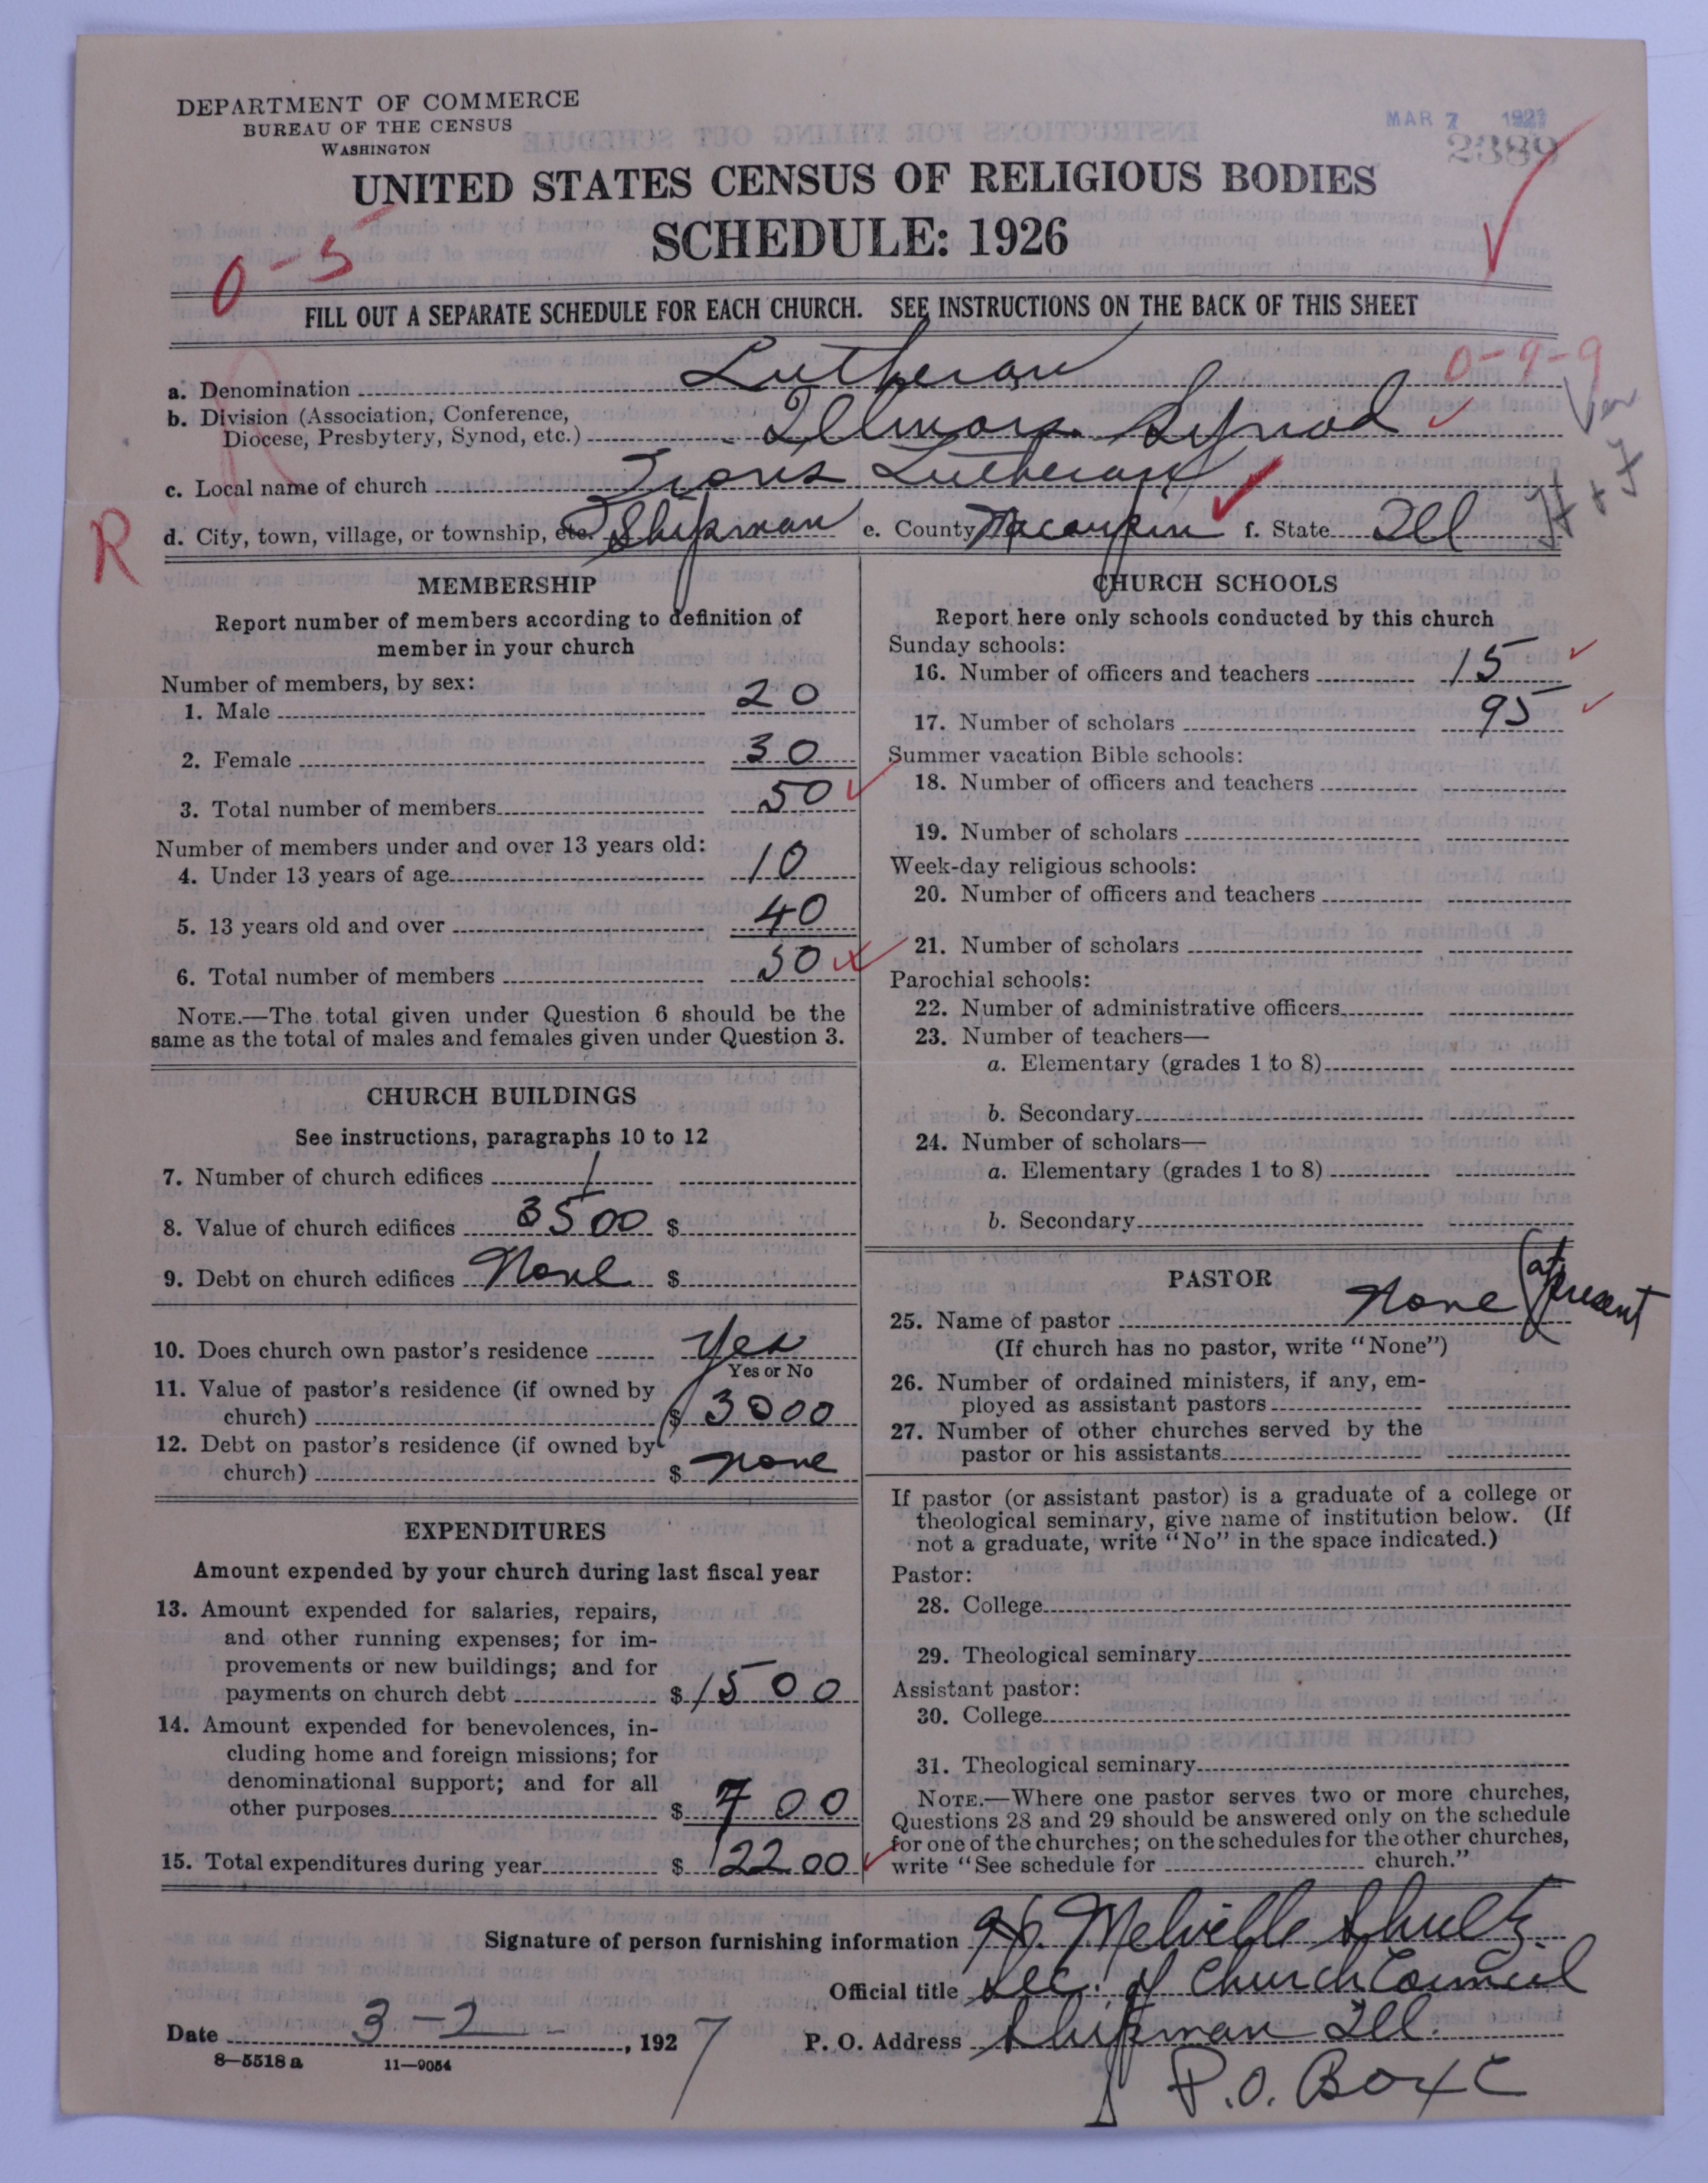 DEPARTMENT OF COMMERCE
BUREAU OF THE CENSUS
WASHINGTON
MAR 7 1927
2389
UNITED STATES CENSUS OF RELIGIOUS BODIES
SCHEDULE: 1926
0-5
FILL OUT A SEPARATE SCHEDULE FOR EACH CHURCH. SEE INSTRUCTIONS ON THE BACK OF THIS SHEET
0-9-9
a. Denomination Lutheran
b. Division (Association, Conference,
Diocese, Presbytery, Synod, etc.) Illinois Synod
c. Local name of church Zions Lutheran
R
d. City, town, village, or township, etc. Shipman e. County Macoupin f. State Ill
MEMBERSHIP
Report number of members according to definition of
member in your church
Number of members, by sex:
1. Male 20
2. Female 30
3. Total number of members 50
Number of members under and over 13 years old:
4. Under 13 years of age 10
5. 13 years old and over 40
6. Total number of members 50
NOTE.—The total given under Question 6 should be the
same as the total of males and females given under Question 3.
CHURCH BUILDINGS
See instructions, paragraphs 10 to 12
7. Number of church edifices 1
8. Value of church edifices 3500 $
9. Debt on church edifices None $
10. Does church own pastor's residence Yes
Yes or No
11. Value of pastor's residence (if owned by
church) $ 3000
12. Debt on pastor's residence (if owned by
church) $ none
EXPENDITURES
Amount expended by your church during last fiscal year
13. Amount expended for salaries, repairs,
and other running expenses; for im-
provements or new buildings; and for
payments on church debt $ 1500
14. Amount expended for benevolences, in-
cluding home and foreign missions; for
denominational support; and for all
other purposes $ 700
15. Total expenditures during year $ 2200
CHURCH SCHOOLS
Report here only schools conducted by this church
Sunday schools:
16. Number of officers and teachers 15
17. Number of scholars 95
Summer vacation Bible schools:
18. Number of officers and teachers
19. Number of scholars
Week-day religious schools:
20. Number of officers and teachers
21. Number of scholars
Parochial schools:
22. Number of administrative officers
23. Number of teachers—
a. Elementary (grades 1 to 8)
b. Secondary
24. Number of scholars—
a. Elementary (grades 1 to 8)
b. Secondary
PASTOR
25. Name of pastor None (at present
(If church has no pastor, write "None")
26. Number of ordained ministers, if any, em-
ployed as assistant pastors
27. Number of other churches served by the
pastor or his assistants
If pastor (or assistant pastor) is a graduate of a college or
theological seminary, give name of institution below. (If
not a graduate, write "No" in the space indicated.)
Pastor:
28. College
29. Theological seminary
Assistant pastor:
30. College
31. Theological seminary
NOTE.—Where one pastor serves two or more churches,
Questions 28 and 29 should be answered only on the schedule
for one of the churches; on the schedules for the other churches,
write "See schedule for church."
Signature of person furnishing information Melville Shultz.
Official title Sec. of Church Council
Date 3-2-, 1927 P. O. Address Shipman Ill.
8—5518a 11—9054
P.O. Box C